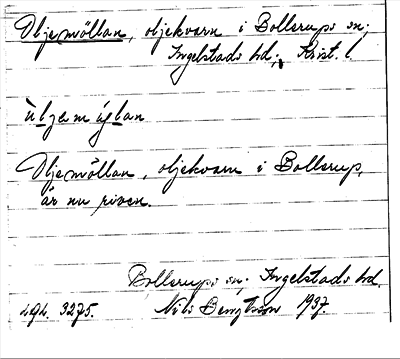 Oljemöllan, oljekvarn i Bollerups sn;
Ingelstads hd; Krist. l.
Oljemöllan, oljekvarn i Bollerup,
är nu riven.
Bollerups sn. Ingelstads hd.
494. 3275. Nils Bengtsson 1937.